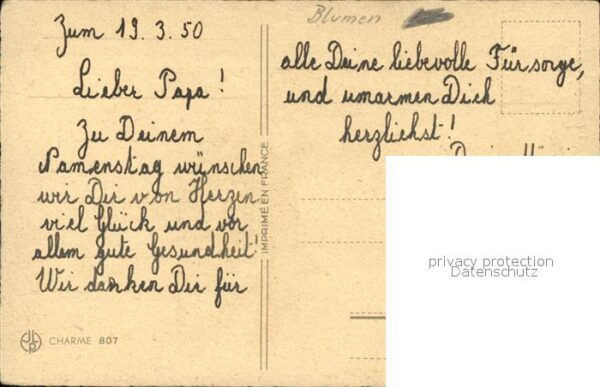 Blumen
Zum 19. 3. 50
Lieber Papa!
Zu Deinem
Namenstag wünschen
wir Dir von Herzen
viel Glück und vor
allem gute Gesundheit!
Wir danken Dir für
alle Deine liebevolle Fürsorge,
und umarmen Dich
herzlichst!
IMPRIMÉ EN FRANCE
JLP
CHARME 807
privacy protection
Datenschutz